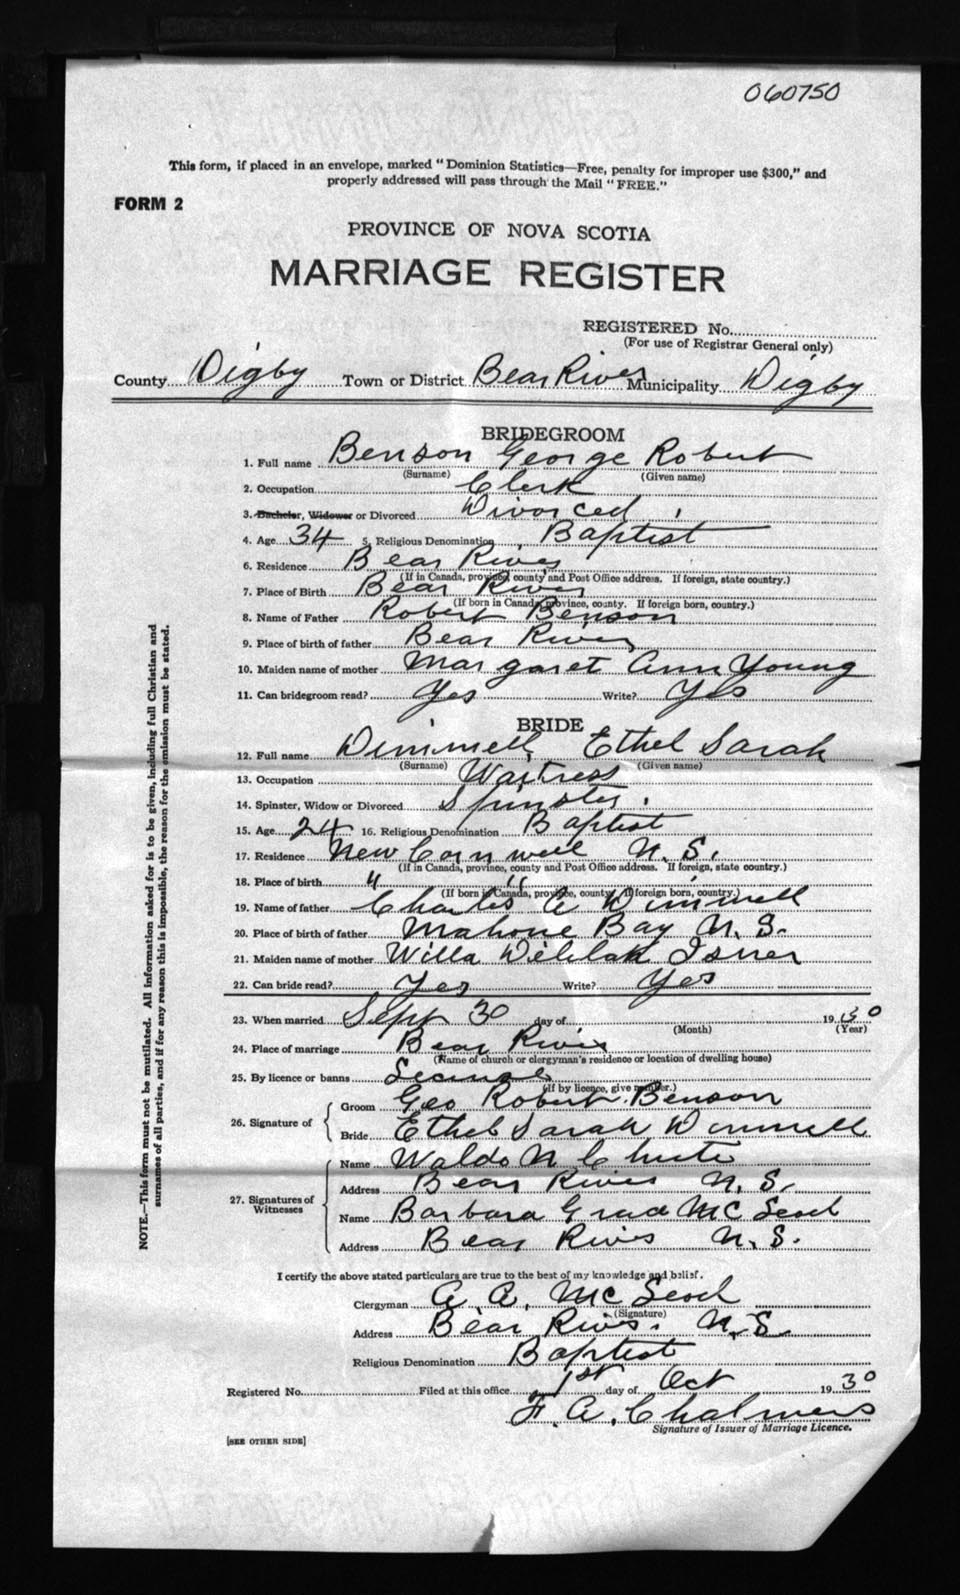 060750
This form, if placed in an envelope, marked "Dominion Statistics—Free, penalty for improper use $300," and
properly addressed will pass through the Mail "FREE."
FORM 2
PROVINCE OF NOVA SCOTIA
MARRIAGE REGISTER
REGISTERED No.
(For use of Registrar General only)
County Digby Town or District Bear River Municipality Digby
BRIDEGROOM
1. Full name Benson George Robert
(Surname) (Given name)
2. Occupation Clerk
3. Bachelor, Widower or Divorced Divorced
4. Age 34 5. Religious Denomination Baptist
6. Residence Bear River
(If in Canada, province, county and Post Office address. If foreign, state country.)
7. Place of Birth Bear River
(If born in Canada, province, county. If foreign born, country.)
8. Name of Father Robert Benson
9. Place of birth of father Bear River
10. Maiden name of mother Margaret Ann Young
11. Can bridegroom read? Yes Write? Yes
BRIDE
12. Full name Dimmell Ethel Sarah
(Surname) (Given name)
13. Occupation Waitress
14. Spinster, Widow or Divorced Spinster
15. Age 24 16. Religious Denomination Baptist
17. Residence New Cornwell N.S.
(If in Canada, province, county and Post Office address. If foreign, state country.)
18. Place of birth " "
(If born in Canada, province, county. If foreign born, country.)
19. Name of father Charles A Dimmell
20. Place of birth of father Mahone Bay N.S.
21. Maiden name of mother Willa Delilah
22. Can bride read? Yes Write? Yes
23. When married Sept 30 day of 1930
(Month) (Year)
24. Place of marriage Bear River
(Name of church or clergyman's residence or location of dwelling house)
25. By licence or banns License
(If by licence, give number.)
26. Signature of Groom Geo Robert Benson
Bride Ethel Sarah Dimmell
27. Signatures of Witnesses Name Waldo N Chute
Address Bear River N.S.
Name Barbara Grace McLeod
Address Bear River N.S.
I certify the above stated particulars are true to the best of my knowledge and belief.
Clergyman A. A. McLeod
(Signature)
Address Bear River. N.S.
Religious Denomination Baptist
Registered No. Filed at this office 1st day of Oct 1930
F. A. Chalmers
Signature of Issuer of Marriage Licence.
[SEE OTHER SIDE]
NOTE.—This form must not be mutilated. All information asked for is to be given, including full Christian and
surnames of all parties, and if for any reason this is impossible, the reason for the omission must be stated.